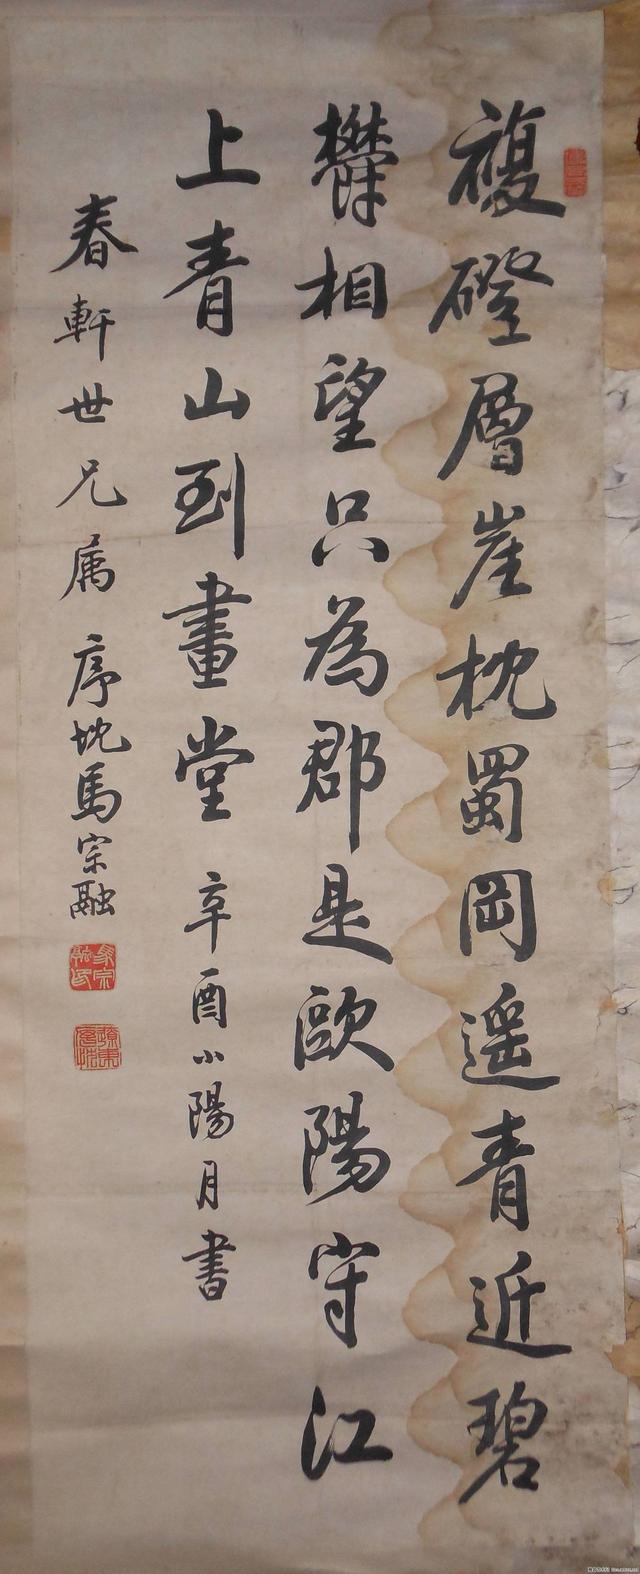 複磴層崖枕蜀岡遥青近碧
鬱相望只為郡是歐陽守江
上青山到畫堂 辛酉小陽月書
春軒世兄属 序忱馬宗融
馬宗融印